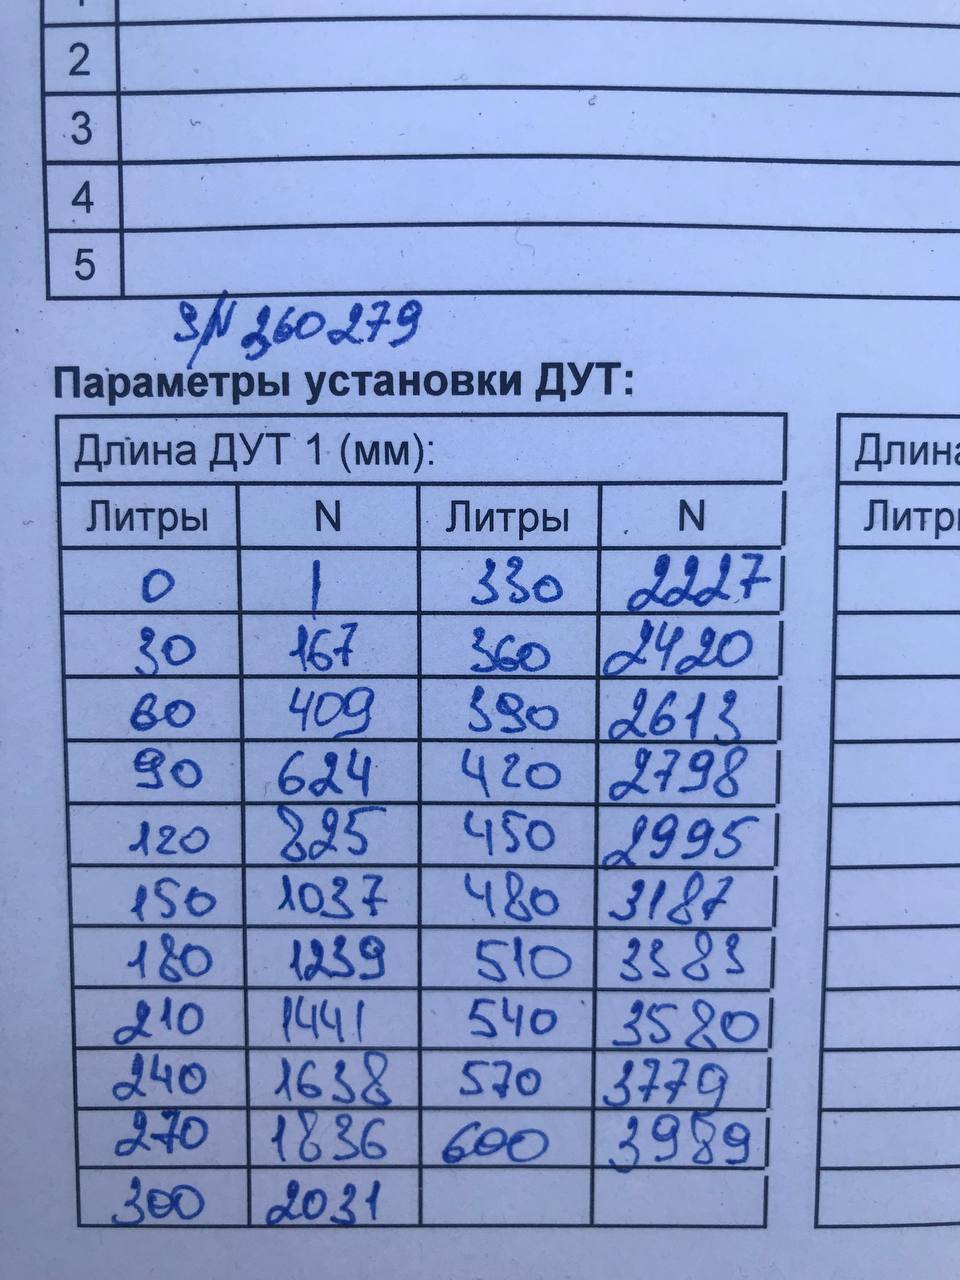 2
3
4
5
S/N 360279
Параметры установки ДУТ:
Длина ДУТ 1 (мм):
Литры N Литры N
0 1 330 2227
30 167 360 2420
60 409 390 2613
90 624 420 2798
120 825 450 2995
150 1037 480 3187
180 1239 510 3383
210 1441 540 3580
240 1638 570 3779
270 1836 600 3989
300 2031
Длина
Литры